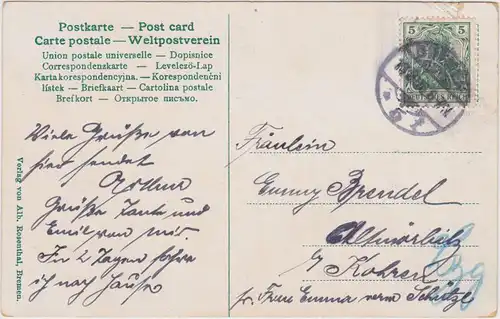 Postkarte — Post card
Carte postale — Weltpostverein
Union postale universelle — Dopisnice
Correspondenskarte — Levelező-Lap
Karta korespondencyjna. — Korespondenční
lístek — Briefkaart — Cartolina postale
Brefkort — Открытое письмо.
Viele Grüße von
hier sendet
Grüße Tante und
Emil von mir.
In 2 Tagen fahre
ich nach Hause
Verlag von Alb. Rosenthal, Bremen.
5 5
Fräulein
Emmy Brendel
Altmörbitz
Kohren
Frau Emma verw Schütze